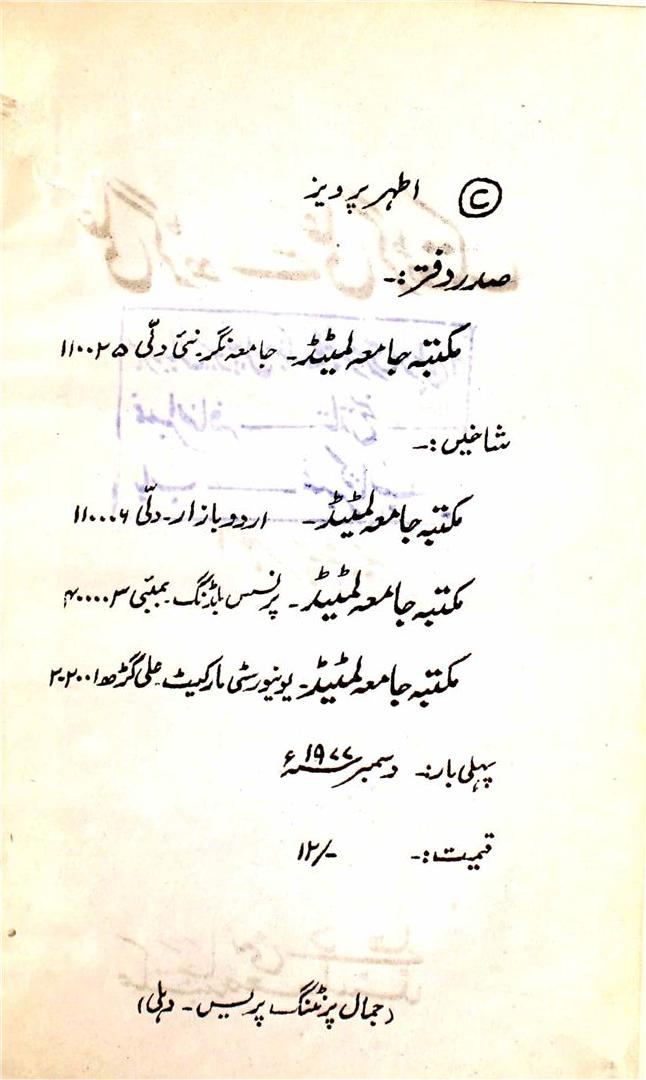 © اطہر پرویز
صدر دفتر:۔
مکتبہ جامعہ لمٹیڈ۔ جامعہ نگر۔ نئی دلّی ۱۱۰۰۲۵
شاخیں:۔
مکتبہ جامعہ لمٹیڈ۔ اردو بازار۔ دلّی ۱۱۰۰۰۶
مکتبہ جامعہ لمٹیڈ۔ پرنسس بلڈنگ۔ بمبئی ۴۰۰۰۰۳
مکتبہ جامعہ لمٹیڈ۔ یونیورسٹی مارکیٹ۔ علی گڑھ ۲۰۲۰۰۱
پہلی بار:۔ دسمبر ۱۹۷۷ء
قیمت:۔ ۱۲/-
(جمال پرنٹنگ پریس۔ دہلی)